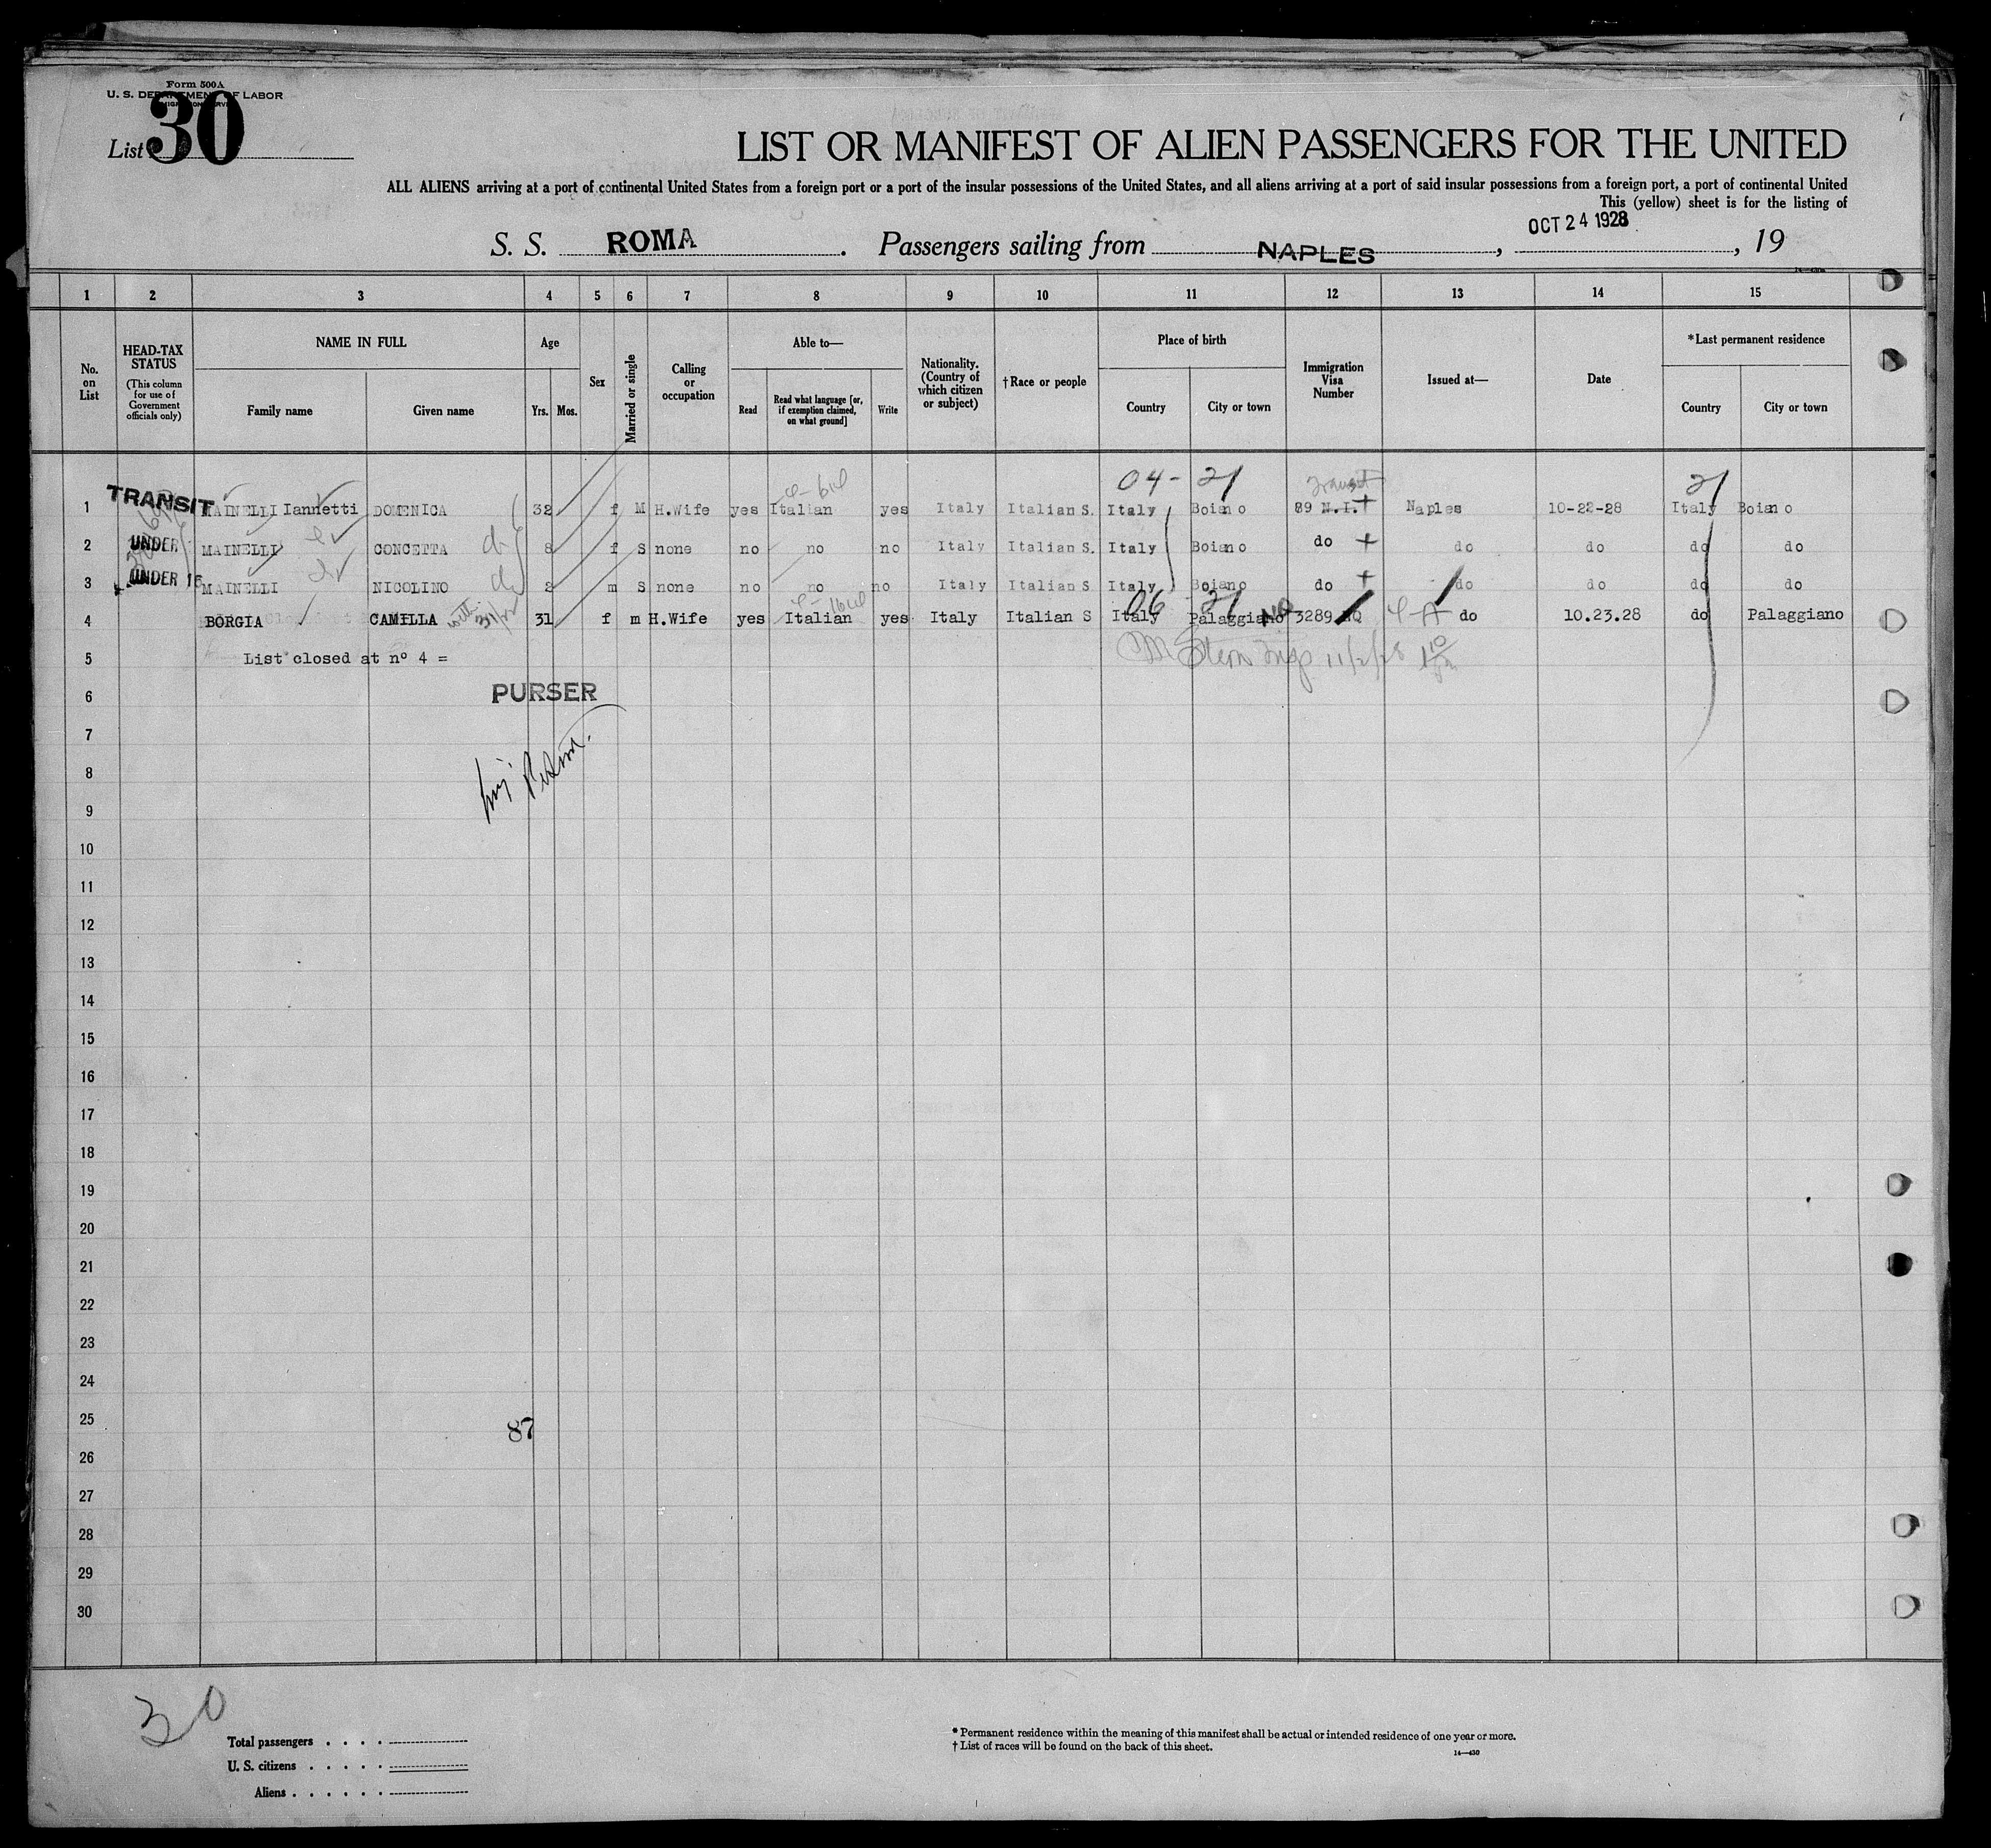 Form 500A
U. S. DEPARTMENT OF LABOR
List 30
LIST OR MANIFEST OF ALIEN PASSENGERS FOR THE UNITED
ALL ALIENS arriving at a port of continental United States from a foreign port or a port of the insular possessions of the United States, and all aliens arriving at a port of said insular possessions from a foreign port, a port of continental United
This (yellow) sheet is for the listing of
S. S. ROMA. Passengers sailing from NAPLES, OCT 24 1928, 19
1 2 3 4 5 6 7 8 9 10 11 12 13 14 15
No. on List
HEAD-TAX STATUS
(This column for use of Government officials only)
NAME IN FULL
Family name Given name
Age
Yrs. Mos.
Sex
Married or single
Calling or occupation
Able to—
Read Read what language [or, if exemption claimed, on what ground] Write
Nationality. (Country of which citizen or subject)
†Race or people
Place of birth
Country City or town
Immigration Visa Number
Issued at—
Date
*Last permanent residence
Country City or town
04- 21 Transit 21
1 TRANSIT MAINELLI Iannetti DOMENICA 32 f M H.Wife yes Italian yes Italy Italian S. Italy Boiano 89 N.I. + Naples 10-22-28 Italy Boiano
2 UNDER MAINELLI CONCETTA 8 f S none no no no Italy Italian S. Italy Boiano do + do do do do
3 UNDER 16 MAINELLI NICOLINO 2 m S none no no no Italy Italian S Italy Boiano do + do do do do
06 21
4 BORGIA CAMILLA 31 f m H.Wife yes Italian yes Italy Italian S Italy Palaggiano NQ 3289 do 10.23.28 do Palaggiano
5 List closed at nº 4 = 11/2/28
6 PURSER
7
8
9
10
11
12
13
14
15
16
17
18
19
20
21
22
23
24
25 87
26
27
28
29
30
30
Total passengers
U. S. citizens
Aliens
* Permanent residence within the meaning of this manifest shall be actual or intended residence of one year or more.
† List of races will be found on the back of this sheet.
14—430